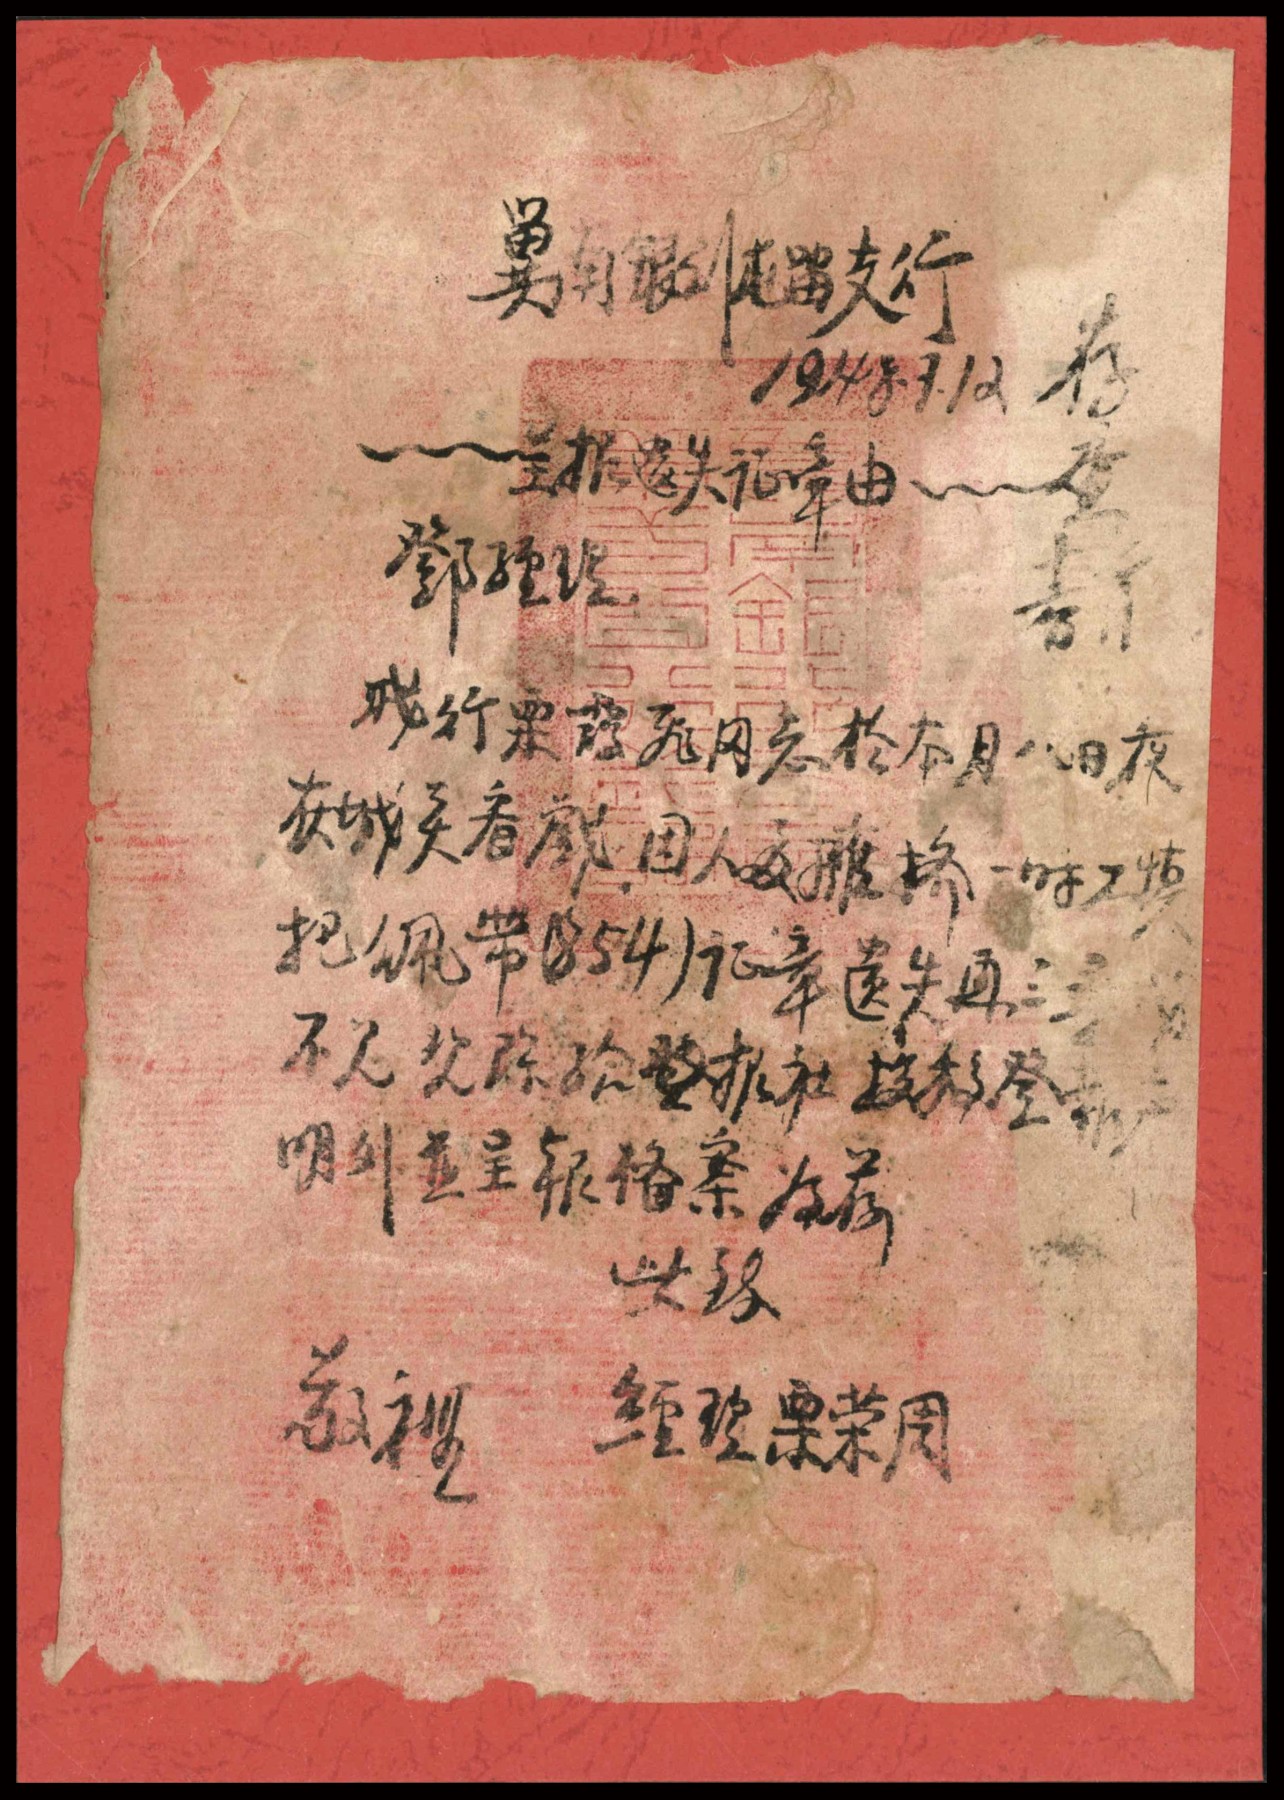 冀南銀行屯留支行
1948.7.12
呈报遗失证章由
鄧經理
我行栗 飛同志於本月八日夜
在城关看戲,因人多擁挤一時不慎
把佩带(854)证章遺失再三
不見 除給 报社 登报
明外並呈報俻案為荷
此致
敬禮
經理栗荣周